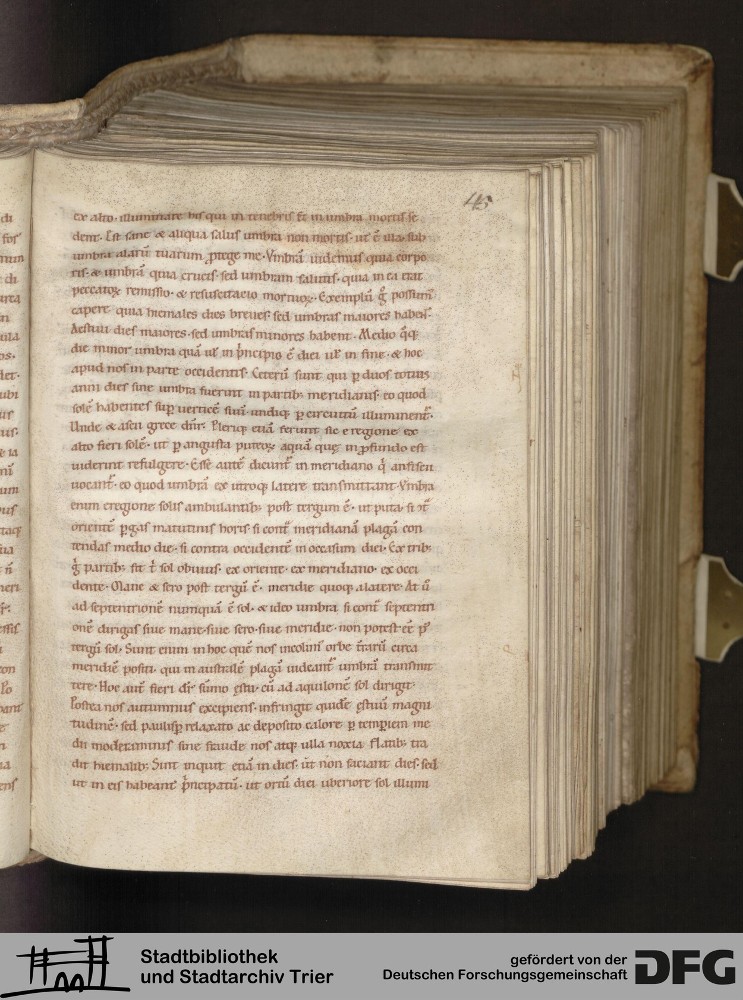 45
ex alto · illuminare his qui in tenebris & in umbra mortis se
dent · Est sane & aliqua salus umbra non mortis · ut ē illa · sub
umbra alarū tuarum ꝓtege me · Vmbrā uidemus quia corpo
ris · & umbrā quia crucis · sed umbram salutis · quia in ea erat
peccatoꝝ remissio · & resuscitacio mortuoꝝ · Exemplū g̊ possum᷑
capere quia hiemales dies breues · sed umbras maiores habent
Aestiui dies maiores · sed umbras minores habent · Medio q̄q
die minor umbra quā ut̄ in p̄ncipio ē diei ut̄ in fine · & hoc
apud nos in parte occidentis · Ceterū sunt qui ꝑ duos totius
anni dies sine umbra fuerint in partib; meridianis · eo quod
solē habentes suꝑ uerticē suū · undiq; ꝑ circuitū illuminent᷑ ·
Unde & ascii grece dn̄r · Pleriq; etiā ferunt sic e regione ex
alto fieri solē · ut ꝑ angusta puteoꝝ aquā quę in ꝓfundo est
uiderint refulgere · Esse autē dicunt᷑ in meridiano q̄ anfiscii
uocant᷑ · eo quod umbrā ex utroq; latere transmittant · Vmbra
enim eregione solis ambulantib; post tergum ē · ut puta · si
orientē ꝑgas matutinis horis · si cont᷑ meridianā plagā con
tendas medio die · si contra occidentē in occasum diei · Ex trib;
g̊ partib; fit t̄ sol obuius · ex oriente · ex meridiano · ex occi
dente · Mane & sero post tergū ē · meridie quoq; alatere · At ū
ad septentrionē numquā ē sol · & ideo umbra si cont᷑ septentri
onē dirigas siue mane · siue sero · siue meridie · non potest eē p᷑
tergū sol · Sunt enim in hoc quē nos incolim᷑ orbe t̄rarū circa
meridiē positi · qui in australē plagā uideant᷑ umbrā transmit
tere · Hoc aut̄ fieri dr̄ sūmo ęstu · cū ad aquilonē sol dirigit᷑ ·
Postea nos autumnus excipiens · infringit quidē ęstiuū magni
tudinē · sed paulisꝑ relaxato ac deposito calore ꝑ temꝑiem me
dii moderaminis sine fraude nos atq; ulla noxia flatib; tra
dit hiemalib; Sint inquit etiā in dies · ut non faciant dies · sed
ut in eis habeant p̄ncipatū · ut ortū diei uberiore sol illumi
Stadtbibliothek
und Stadtarchiv Trier
gefördert von der
Deutschen Forschungsgemeinschaft
DFG